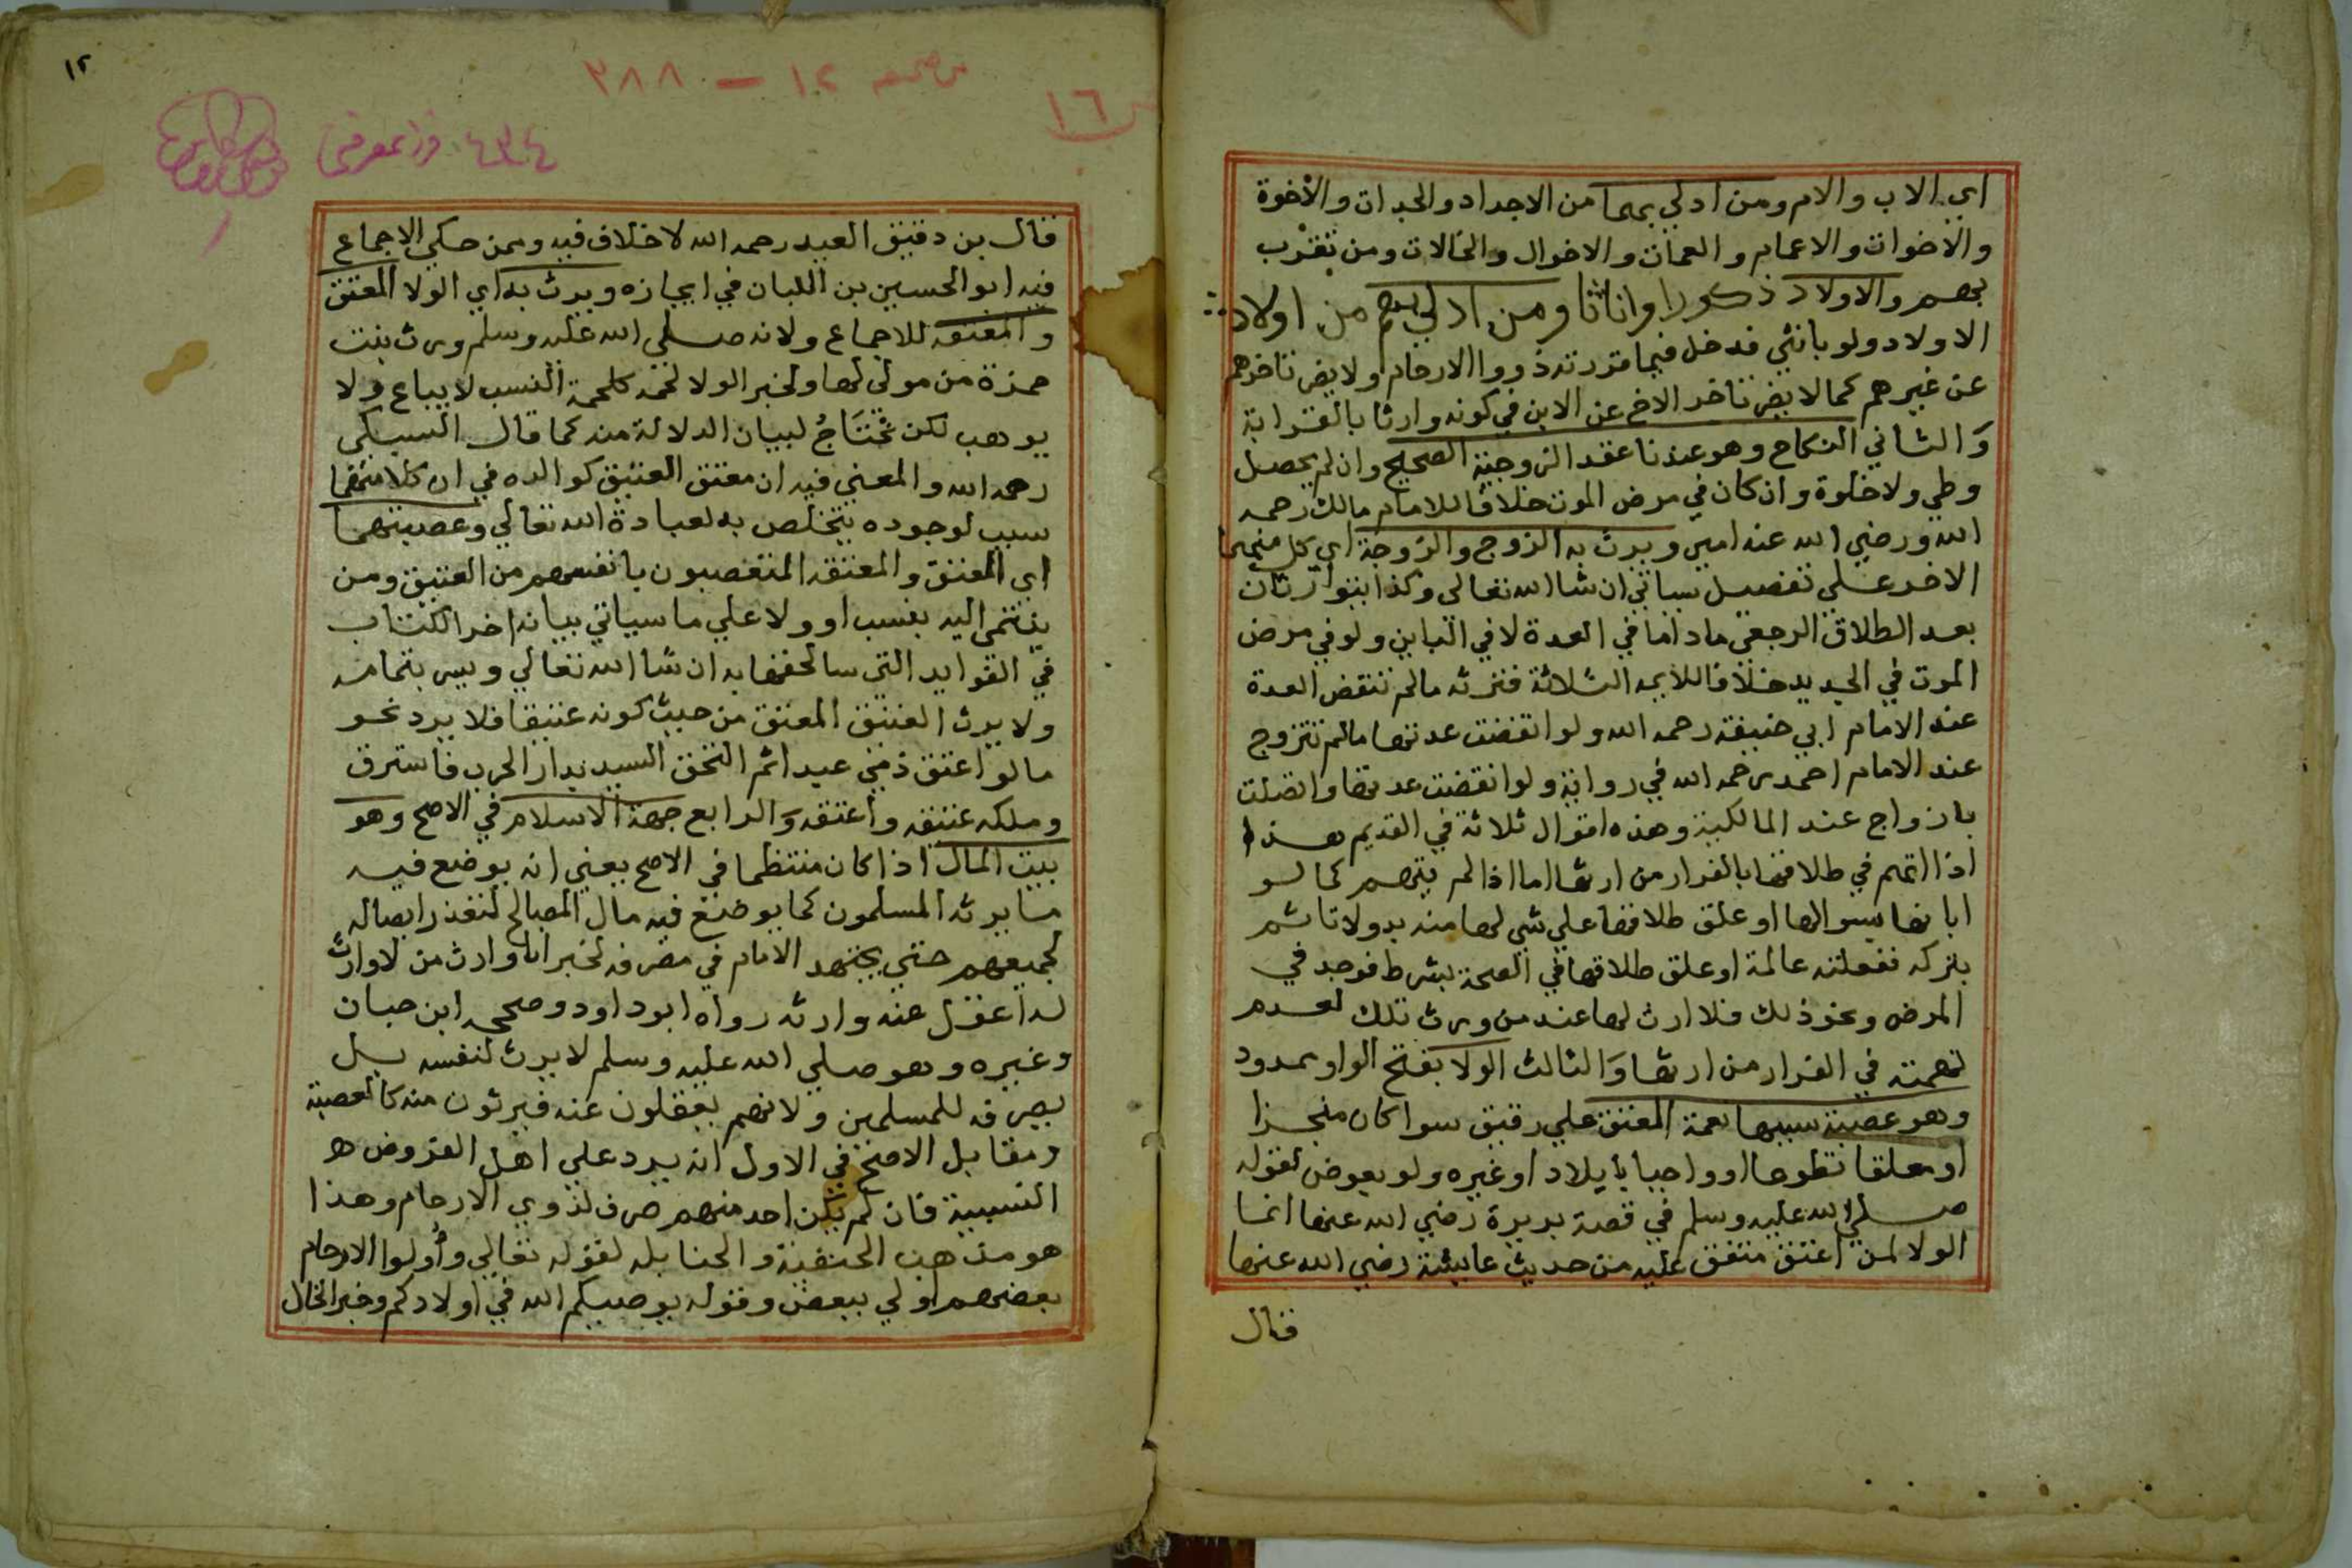 اي الاب والام ومن ادلي بهما من الاجداد والجدات والاخوة
والاخوات والاعمام والعمات والاخوال والخالات ومن تقرب
بهم والاولاد ذكورا واناثا ومن ادلي بهم من اولاد
الاولاد ولو بانثي فدخل فيما قررته ذووا الارحام ولا يضر تاخرهم
عن غيرهم كما لا يضر تاخر الاخ عن الابن في كونه وارثا بالقرابة
والثاني النكاح وهو عندنا عقد الزوجية الصحيح وان لم يحصل
وطي ولا خلوة وان كان في مرض الموت خلافا للامام مالك رحمه
الله ورضي الله عنه امين ويرث به الزوج والزوجة اي كل منهما
الاخر علي تفصيل سياتي ان شا الله تعالي وكذا يتوارثان
بعد الطلاق الرجعي ماداما في العدة لا في الباين ولو في مرض
الموت في الجديد خلافا للايمه الثلاثة فترثه مالم تنقض العدة
عند الامام ابي حنيفة رحمه الله ولو انقضت عدتها مالم تتزوج
عند الامام احمد رحمه الله في رواية ولو انقضت عدتها واتصلت
بازواج عند المالكية وهذه اقوال ثلاثة في القديم هذا
اذا اتهم في طلاقها بالفرار من ارثها اما اذا لم يتهم كما لو
ابانها بسوالها او علق طلاقها علي شي لها منه بد ولا تاثم
بتركه ففعلته عالمة او علق طلاقها في الصحة بشرط فوجد في
المرض ونحو ذلك فلا ارث لها عند من ورث تلك لعدم
تهمته في الفرار من ارثها والثالث الولا بفتح الواو ممدود
وهو عصبية سببها نعمة المعتق علي رقيق سوا كان منجزا
او معلقا تطوعا او واجبا بايلاد او غيره ولو بعوض لقوله
صلي الله عليه وسلم في قصة بريرة رضي الله عنها انما
الولا لمن اعتق متفق عليه من حديث عايشة رضي الله عنها
قال
١٢
من صحيفه ١٢ — ٣٨٨
١٦
قال بن دقيق العيد رحمه الله لا خلاف فيه وممن حكي الاجماع
فيه ابو الحسين بن اللبان في ايجازه ويرث به اي الولا المعتق
والمعتقه للاجماع ولانه صلي الله عليه وسلم ورث بنت
حمزة من مولي لها ولخبر الولا لحمه كلحمة النسب لا يباع ولا
يوهب لكن تحتاج لبيان الدلالة منه كما قال السبكي
رحمه الله والمعني فيه ان معتق العتيق كوالده في ان كلا منهما
سبب لوجوده يتخلص به لعبادة الله تعالي وعصبتهما
اي المعتق والمعتقه المتعصبون بانفسهم من العتيق ومن
ينتمي اليه بنسب او ولا علي ما سياتي بيانه اخر الكتاب
في الفوايد التي سالحقها به ان شا الله تعالي ويسر بتمامه
ولا يرث العتيق المعتق من حيث كونه عتيقا فلا يرد نحو
ما لو اعتق ذمي عبدا ثم التحق السيد بدار الحرب فاسترق
وملكه عتيقه واعتقه والرابع جهة الاسلام في الاصح وهو
بيت المال اذا كان منتظما في الاصح يعني انه يوضع فيه
ما يرثه المسلمون كما يوضع فيه مال المصالح لتعذر ايصاله
لجميعهم حتي يجتهد الامام في مصرفه لخبر انا وارث من لا وارث
له اعقل عنه وارثه رواه ابو داود وصححه ابن حبان
وغيره وهو صلي الله عليه وسلم لا يرث لنفسه بل
يصرفه للمسلمين ولانهم يعقلون عنه فيرثون منه كالعصبة
ومقابل الاصح في الاول انه يرد علي اهل الفروض
النسبية فان لم يكن احد منهم صرف لذوي الارحام وهذا
هو مذهب الحنفية والحنابله لقوله تعالي وأولوا الارحام
بعضهم اولي ببعض وقوله يوصيكم الله في اولادكم وخبر الخال